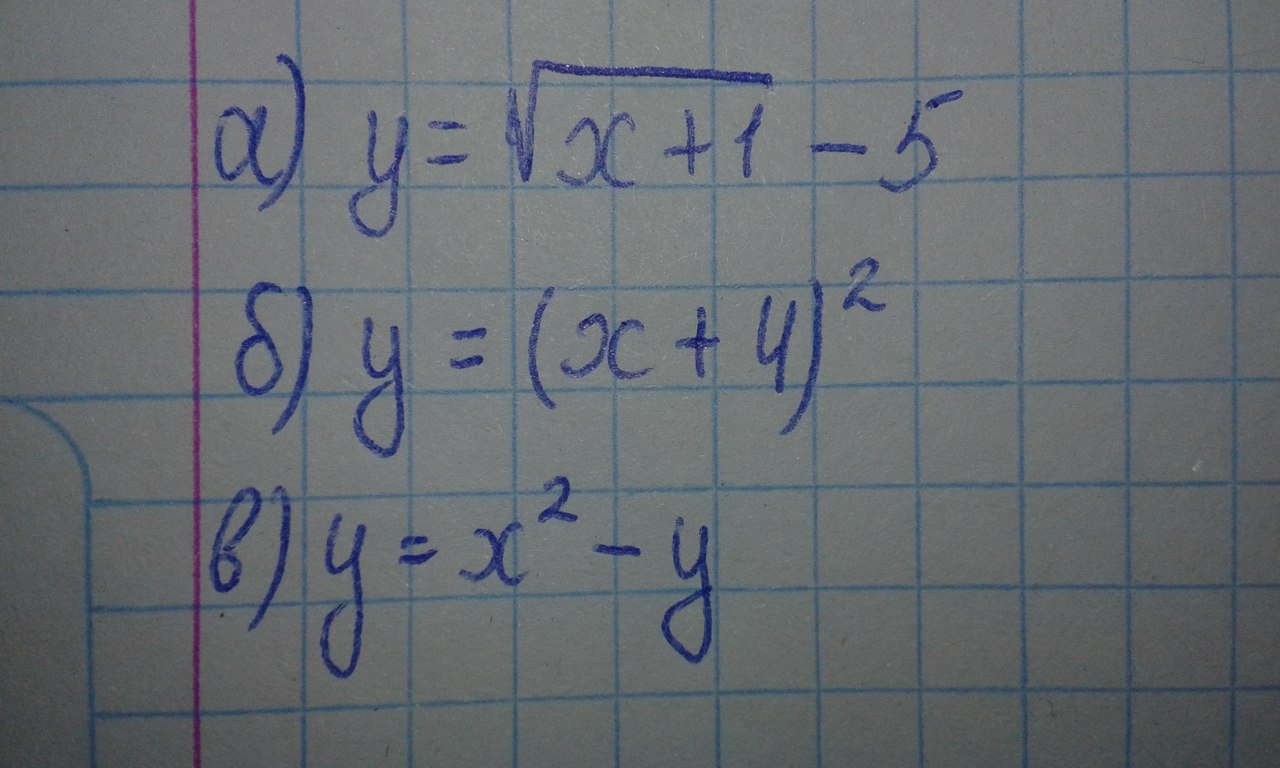 а) y = √(x+1) - 5
б) y = (x + 4)²
в) y = x² - y